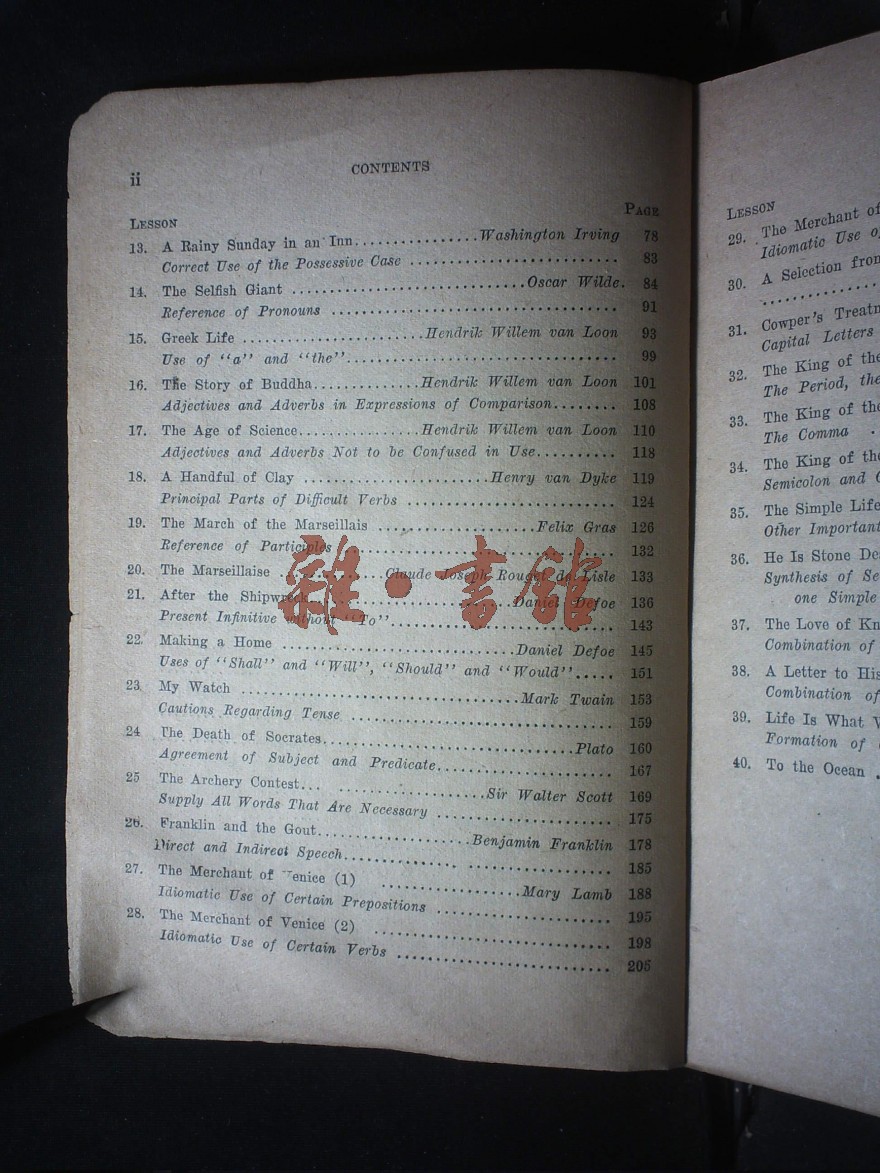 ii
CONTENTS
LESSON
PAGE
13. A Rainy Sunday in an Inn................Washington Irving 78
Correct Use of the Possessive Case ............................ 83
14. The Selfish Giant ...............................Oscar Wilde. 84
Reference of Pronouns ...................................... 91
15. Greek Life ........................Hendrik Willem van Loon 93
Use of "a" and "the".................................... 99
16. The Story of Buddha..............Hendrik Willem van Loon 101
Adjectives and Adverbs in Expressions of Comparison........ 108
17. The Age of Science................Hendrik Willem van Loon 110
Adjectives and Adverbs Not to be Confused in Use.......... 118
18. A Handful of Clay ........................Henry van Dyke 119
Principal Parts of Difficult Verbs ............................ 124
19. The March of the Marseillais .....................Felix Gras 126
Reference of Participles ..................................... 132
20. The Marseillaise ..............Claude Joseph Rouget de Lisle 133
21. After the Shipwreck...........................Daniel Defoe 136
Present Infinitive without "To".............................. 143
22. Making a Home ...............................Daniel Defoe 145
Uses of "Shall" and "Will", "Should" and "Would"..... 151
23. My Watch .....................................Mark Twain 153
Cautions Regarding Tense ................................... 159
24 The Death of Socrates.................................Plato 160
Agreement of Subject and Predicate....................... 167
25 The Archery Contest... ....................Sir Walter Scott 169
Supply All Words That Are Necessary ........................ 175
26. Franklin and the Gout....................Benjamin Franklin 178
Direct and Indirect Speech................................... 185
27. The Merchant of Venice (1) ...................Mary Lamb 188
Idiomatic Use of Certain Prepositions ........................ 195
28. The Merchant of Venice (2) ................................ 198
Idiomatic Use of Certain Verbs ............................. 205
雜·書館
LESSON
29. The Merchant of
Idiomatic Use
30. A Selection from
31. Cowper's
Capital Letters
32. The King of the
The Period, the
33. The King of the
The Comma
34. The King of the
Semicolon and
35. The Simple Life
Other Important
36. He Is Stone
Synthesis of
one Simple
37. The Love of
Combination of
38. A Letter to His
Combination of
39. Life Is What
Formation of
40. To the Ocean